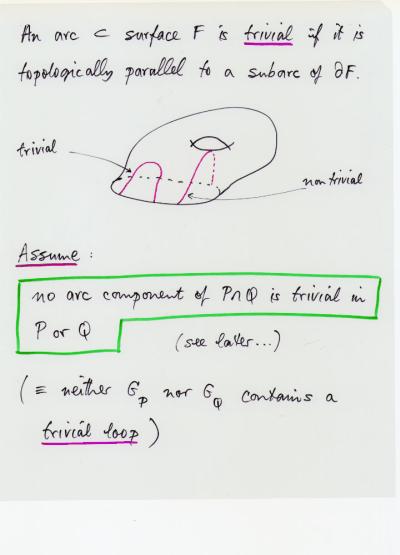 An arc ⊂ surface F is trivial if it is
topologically parallel to a subarc of ∂F.
trivial
nontrivial
Assume :
no arc component of P∩Q is trivial in
P or Q
(see later...)
(≡ neither G_P nor G_Q contains a
trivial loop)